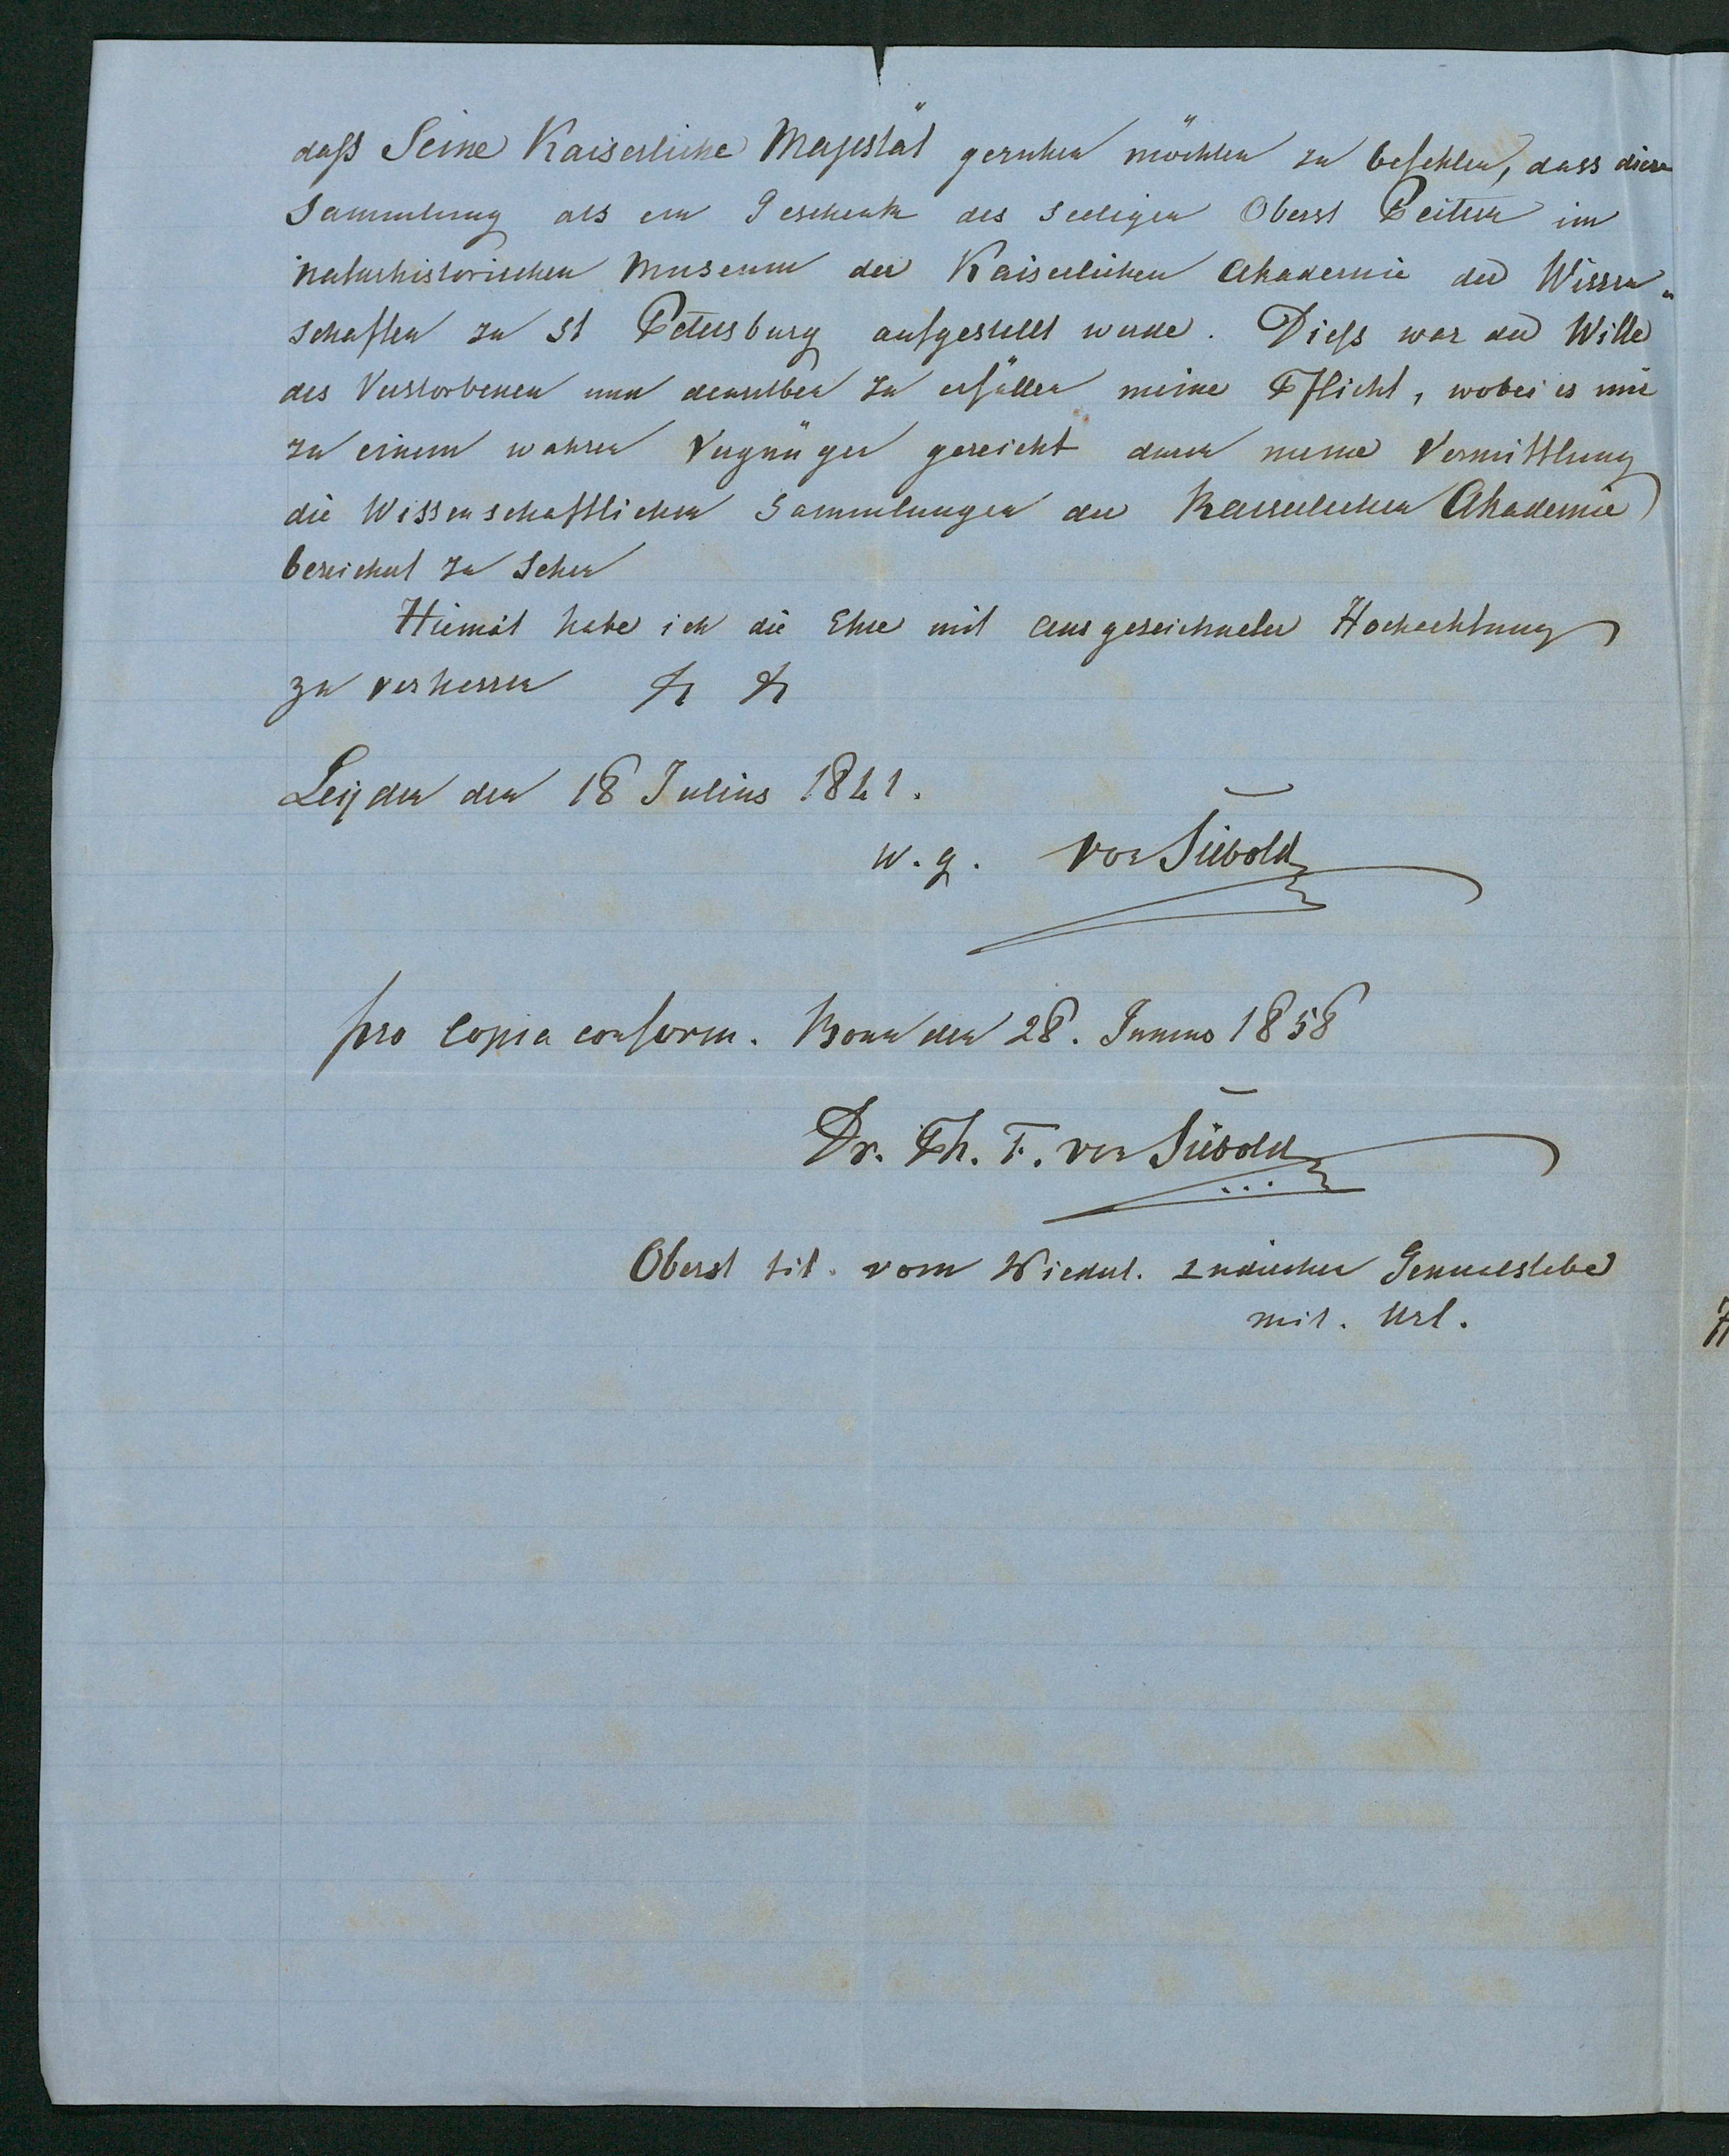 daß Seine Kaiserliche Majestät geruhen möchten zu befehlen, dass diese
Sammlung als ein Geschenk des Seeligen Oberst Peitsch im
Naturhistorischen Museum der Kaiserlichen Akademie der Wissen-
schaften zu St Petersburg aufgestellt werde. Dieß war der Wille
des Verstorbenen und denselben zu erfüllen meine Pflicht, wobei es mir
zu einem wahren Vergnügen gereicht durch meine Vermittlung
die Wissenschaftlichen Sammlungen der Kaiserlichen Akademie
bereichert zu sehen
Hiemit habe ich die Ehre mit ausgezeichneter Hochachtung
zu verharren
Leijden den 18 Julius 1841.
w. g. von Siebold
pro copia conform. Bonn den 28. Junius 1858
Dr. Ph. F. von Siebold
Oberst tit. vom Niederl. Indischen Generalstabe
mit. Url.